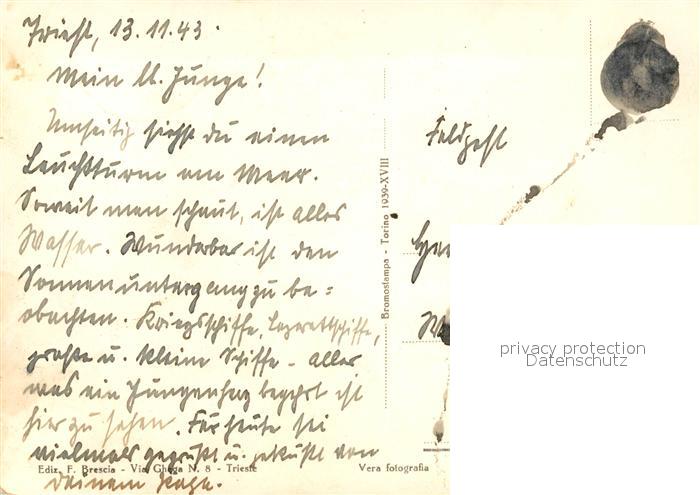 Triest, 13.11.43.
Mein lb. Junge!
Umseitig siehst du einen
Leuchtturm am Meer.
Soweit man schaut, ist alles
Wasser. Wunderbar ist den
Sonnenuntergang zu be=
obachten. Kriegsschiffe, Lazarettschiffe,
große u. kleine Schiffe - alles,
was ein Jungenherz begehrt ist
hier zu sehen. Für heute sei
vielmals gegrüßt u. geküßt von
deinem
Feldpost
Bromostampa - Torino 1939-XVIII
privacy protection
Datenschutz
Ediz. F. Brescia - Via Ghega N. 8 - Trieste
Vera fotografia